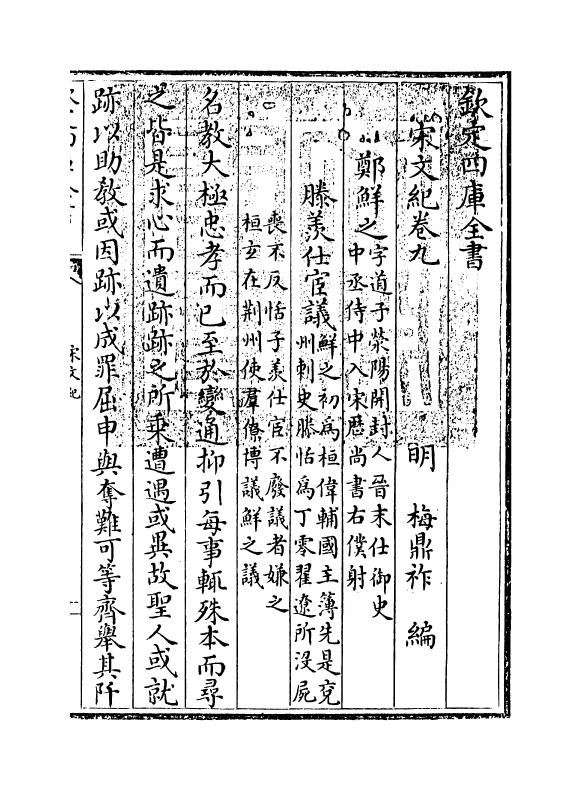 欽定四庫全書
宋文紀卷九
明　梅鼎祚　編
鄭鮮之字道子滎陽開封人晉末仕御史
中丞侍中入宋歷尚書右僕射
滕羨仕宦議鮮之初為桓偉輔國主簿先是兗
州刺史滕恬為丁零翟遼所没屍
喪不反恬子羨仕宦不廢議者嫌之
桓玄在荆州使羣僚博議鮮之議
名教大極忠孝而已至於變通抑引每事輒殊本而尋
之皆是求心而遺跡跡之所乗遭遇或異故聖人或就
跡以助教或因跡以成罪屈申與奪難可等齊舉其阡
宋文紀